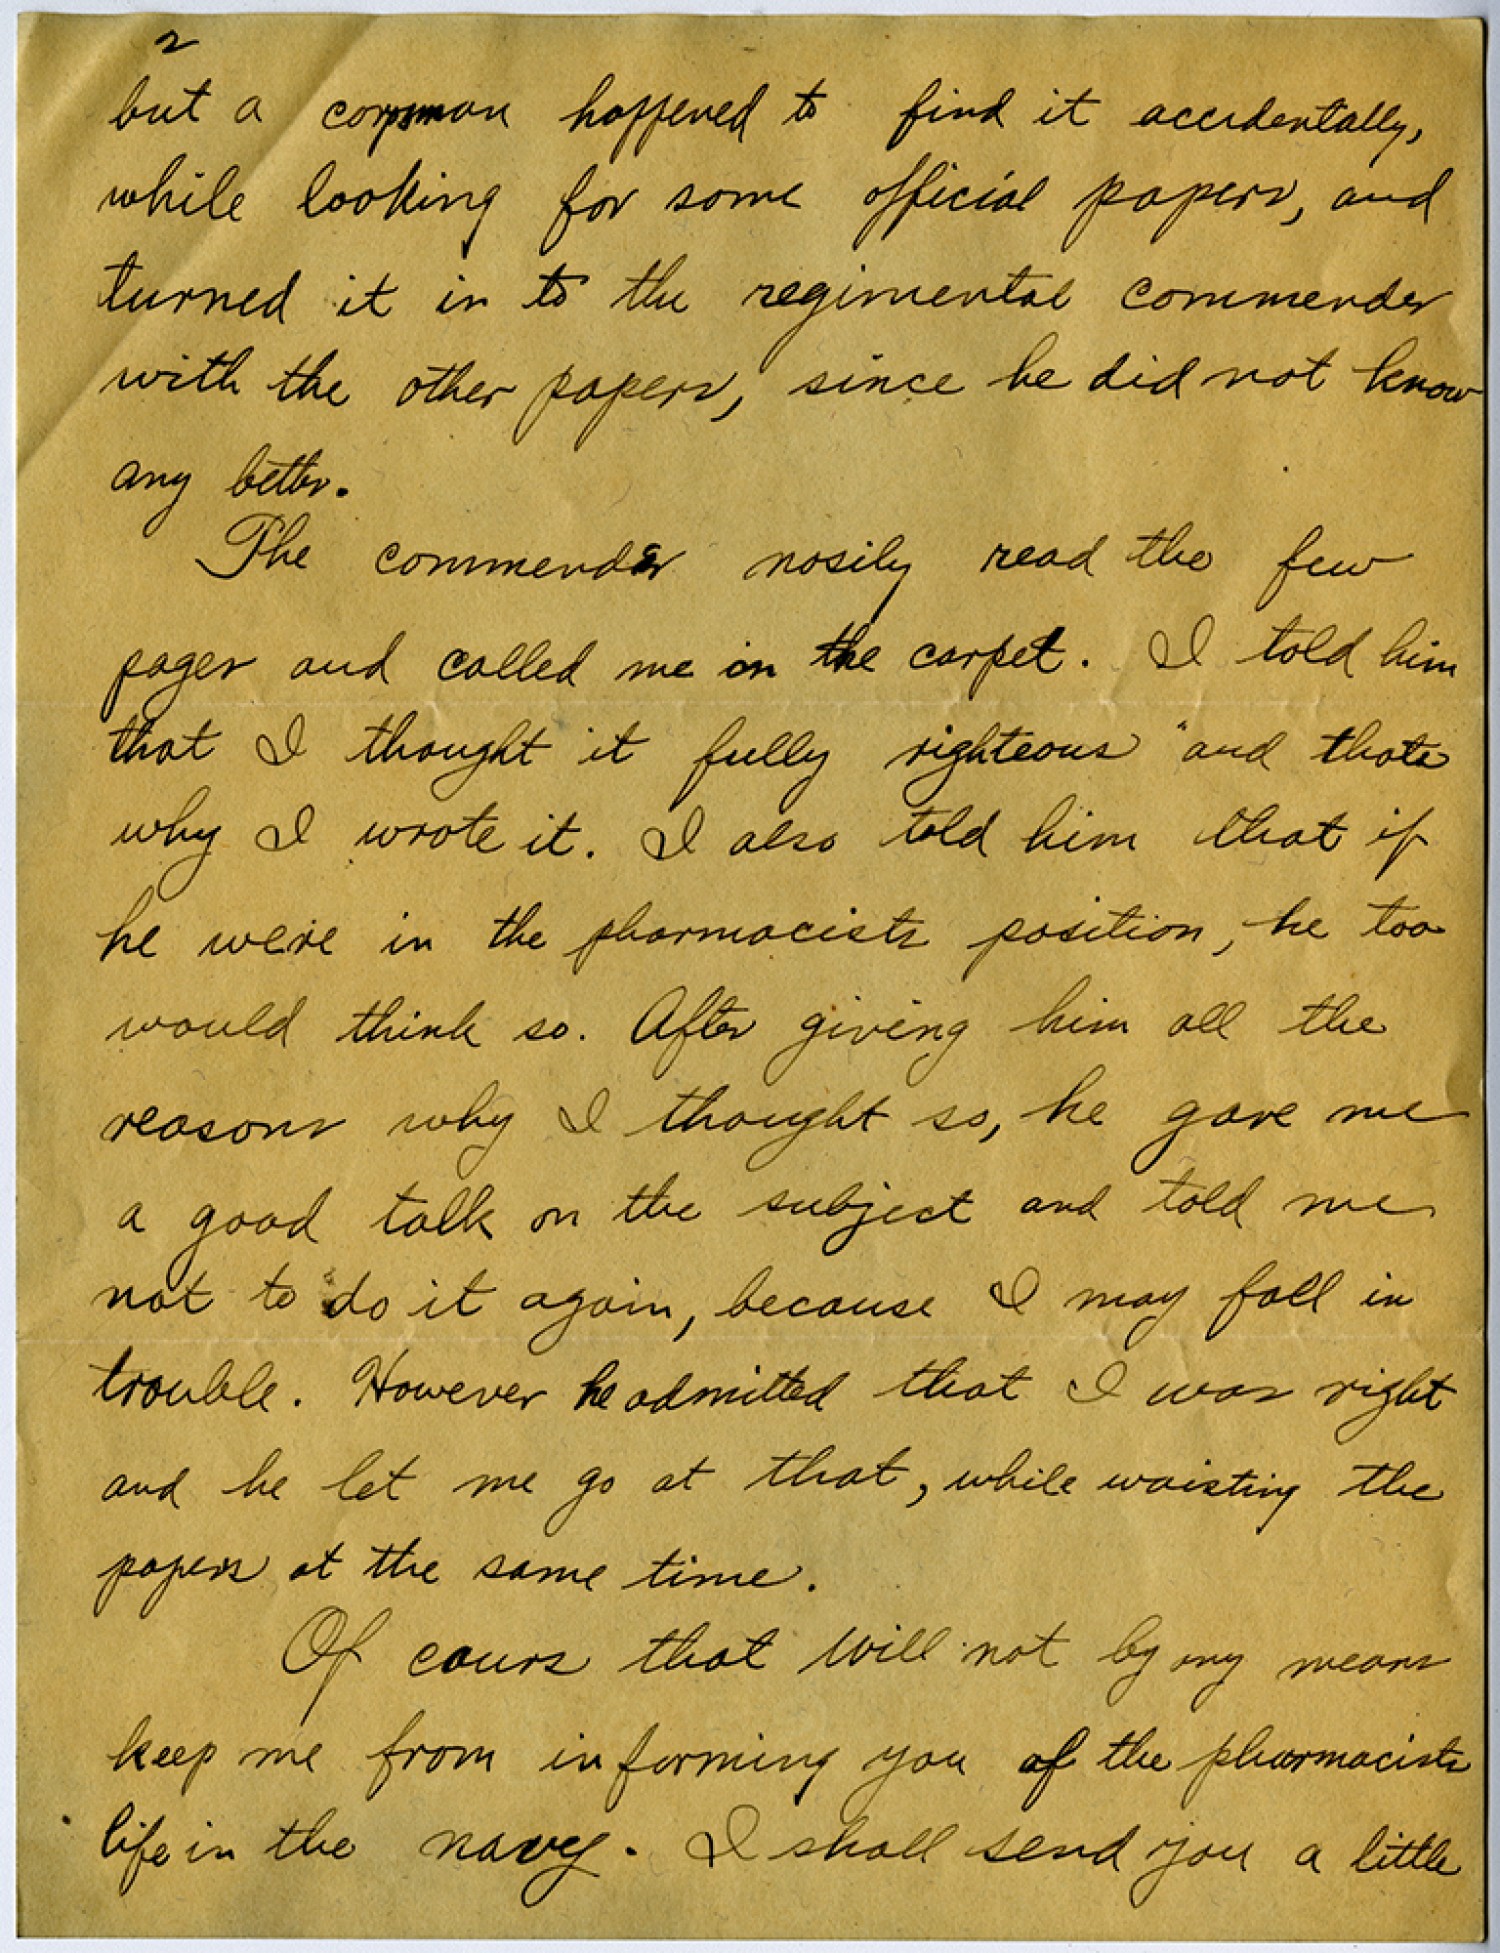 2
but a corpsman happened to find it accidentally,
while looking for some official papers, and
turned it in to the regimental commender
with the other papers, since he did not know
any better.
The commender nosily read the few
pages and called me on the carpet. I told him
that I thought it fully righteous and thats
why I wrote it. I also told him that if
he were in the pharmacists position, he too
would think so. After giving him all the
reasons why I thought so, he gave me
a good talk on the subject and told me
not to do it again, because I may fall in
trouble. However he admitted that I was right
and he let me go at that, while waisting the
papers at the same time.
Of cours that will not by any means
keep me from informing you of the pharmacists
life in the navy. I shall send you a little